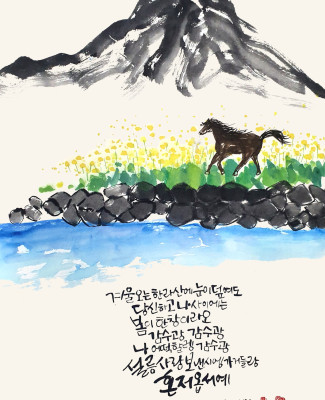 겨울오는 한라산에 눈이 덮여도
당신하고 나 사이에는
봄의 한창이라오
감수광 감수광
나 어떡할렝 감수광
설룸 사랑 보낸시엥 가거들랑
혼저옵서예